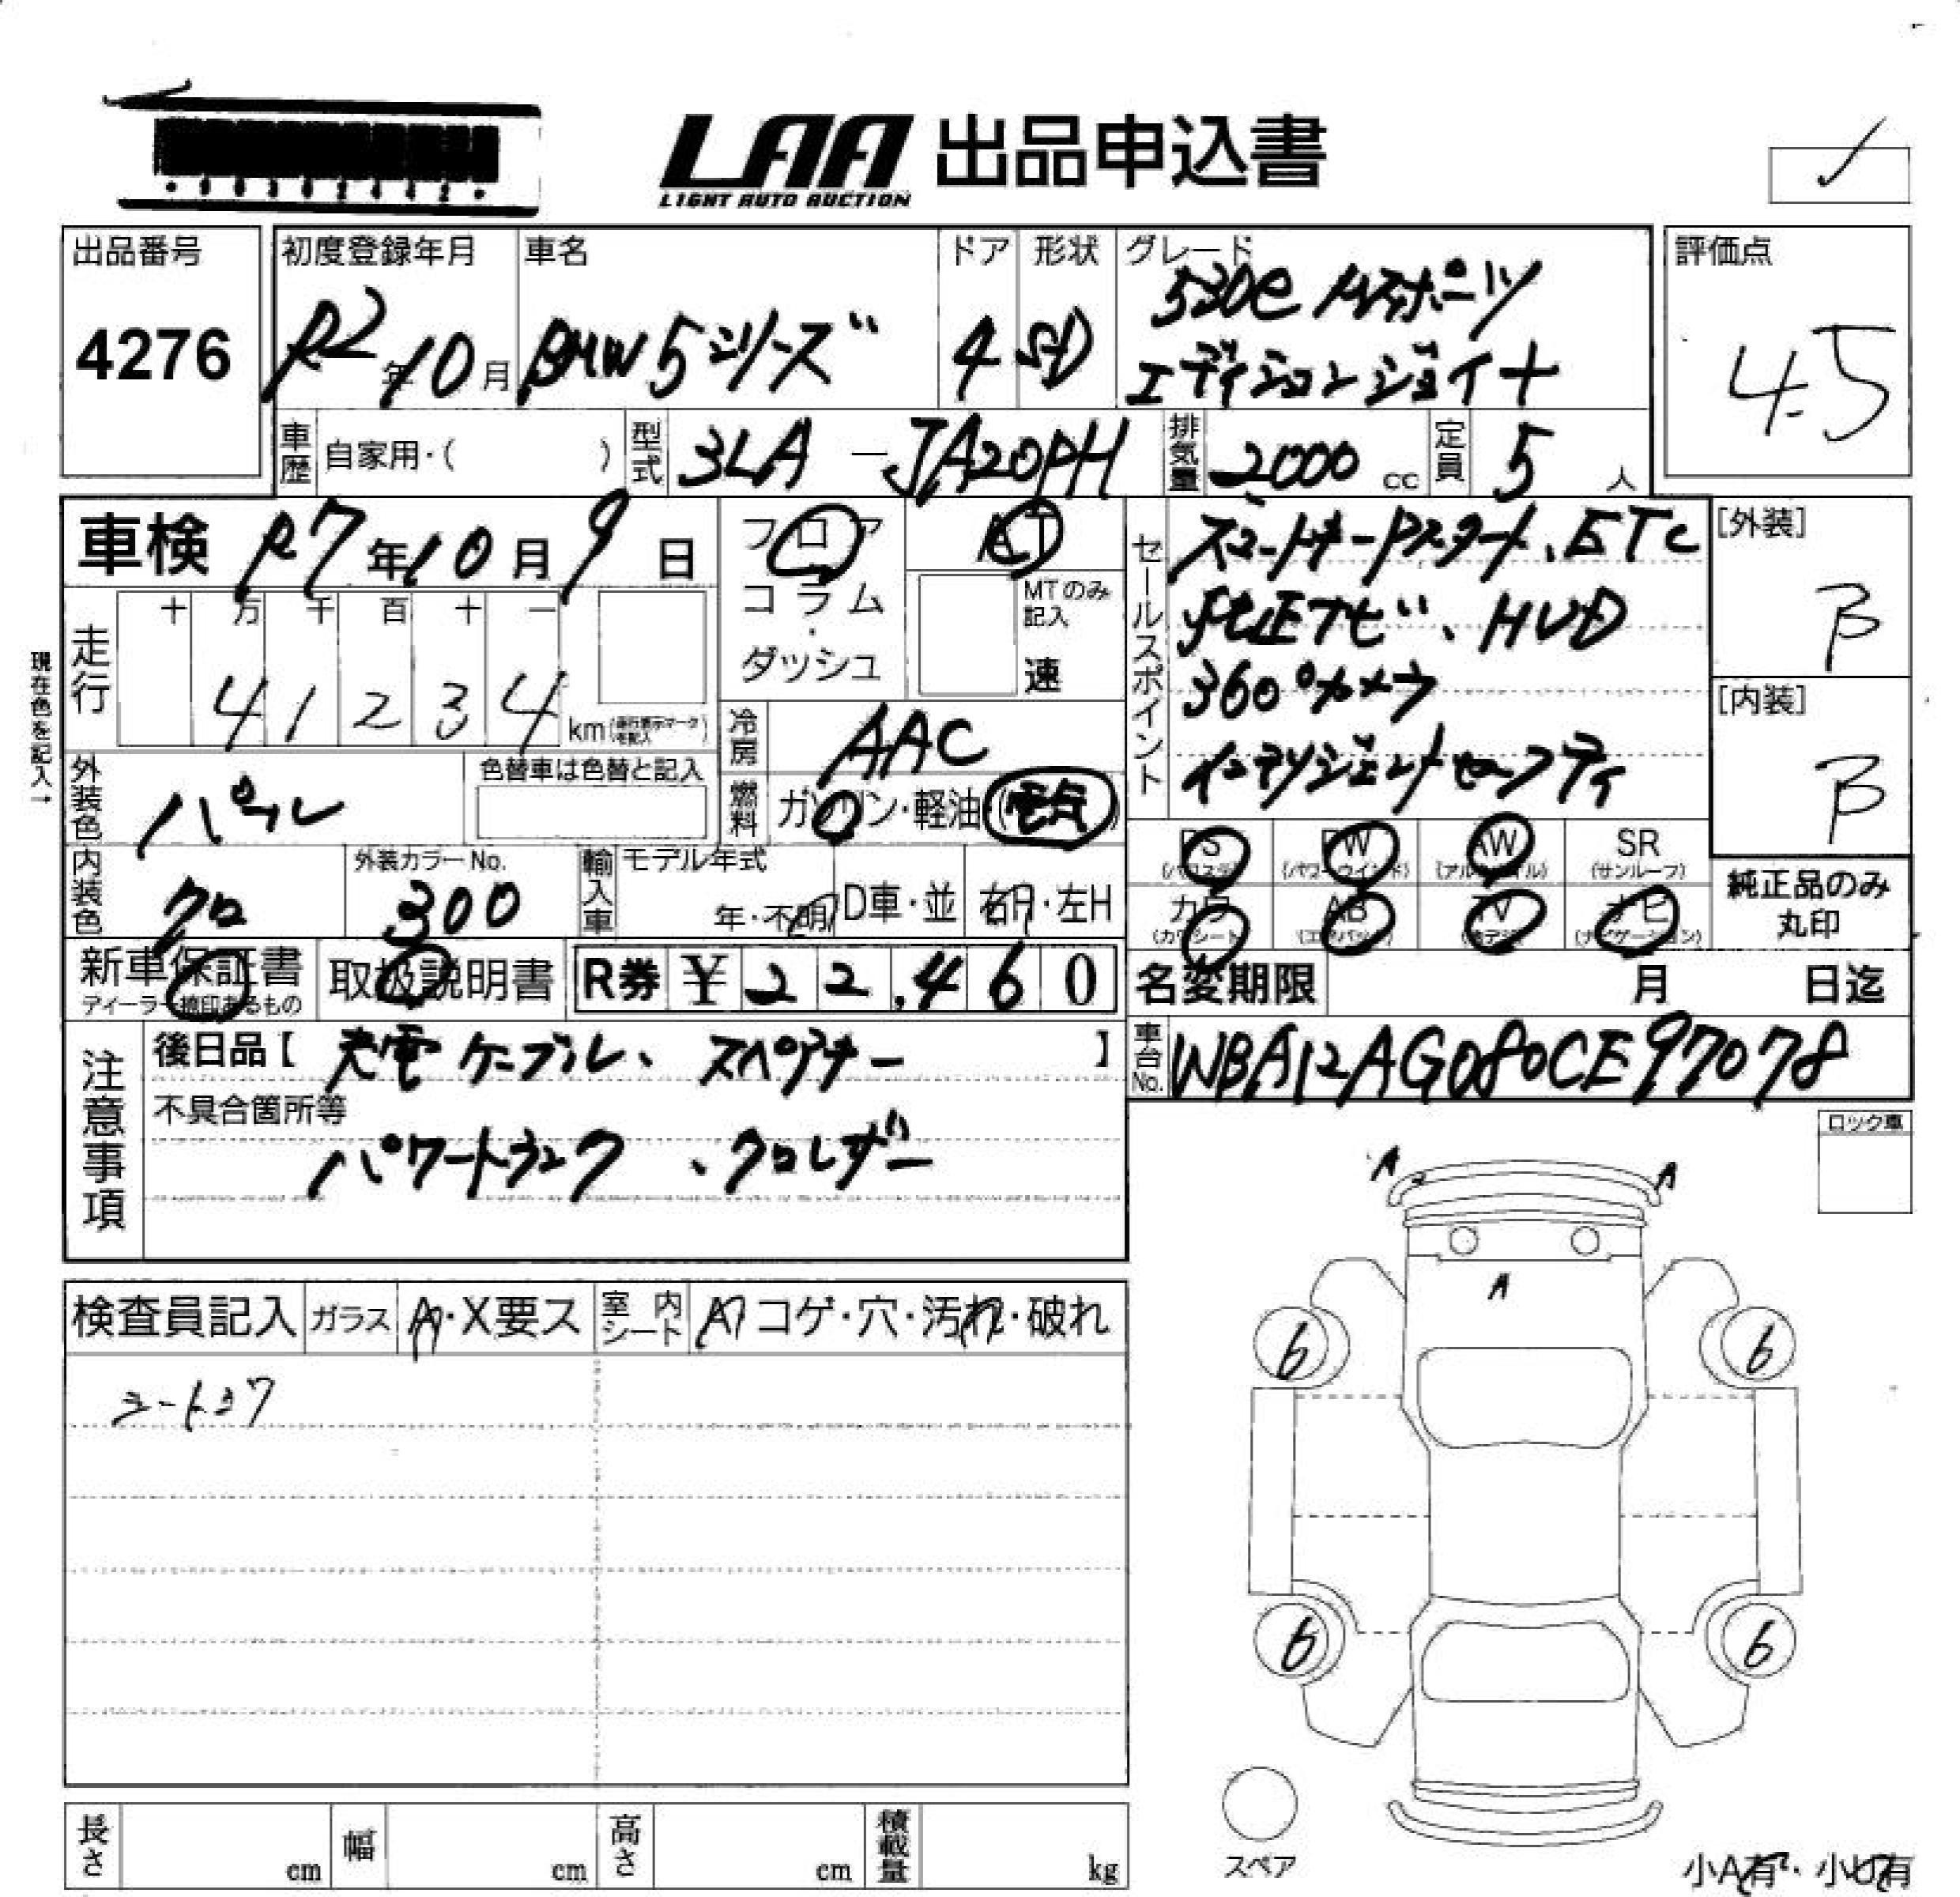 LAA 出品申込書
LIGHT AUTO AUCTION
出品番号
4276
初度登録年月
R2年10月
車名
BMW 5シリーズ
ドア
4
形状
SD
グレード
530e Mスポーツ
エディションジョイ+
評価点
4.5
車歴 自家用・( )
型式 3LA-JA20PH
排気量 2000 cc
定員 5 人
車検 R7年10月9日
フロア
コラム
・
ダッシュ
AT
MTのみ
記入
速
セールスポイント
スマートキーPスタート、ETC
純正ナビ、HUD
360°カメラ
インテリジェントセーフティ
[外装]
B
[内装]
B
現在色を記入→
走行
十 万 千 百 十 一
4 1 2 3 4 km
冷房 AAC
外装色 パール
色替車は色替と記入
燃料 ガソリン・軽油・(電気)
内装色 クロ
外装カラーNo.
300
輸入車
モデル年式
年・不明
D車・並
右H・左H
PS PW AW SR
(パワステ) (パワーウインド) (アルミホイル) (サンルーフ)
カワ AB TV ナビ
(カワシート) (エアバッグ) (地デジ) (ナビゲーション)
純正品のみ
丸印
新車保証書
ディーラー捺印あるもの
取扱説明書
R券 ¥ 22,460
名変期限 月 日迄
車台No. WBA12AG080CE97078
注意事項
後日品【 充電ケーブル、スペアキー 】
不具合箇所等
パワートランク、クロレザー
ロック車
検査員記入
ガラス A・X要ス
室内シート A コゲ・穴・汚れ・破れ
シートスレ
A A
A
6 6
6 6
スペア
長さ cm
幅 cm
高さ cm
積載量 kg
小A有・小U有